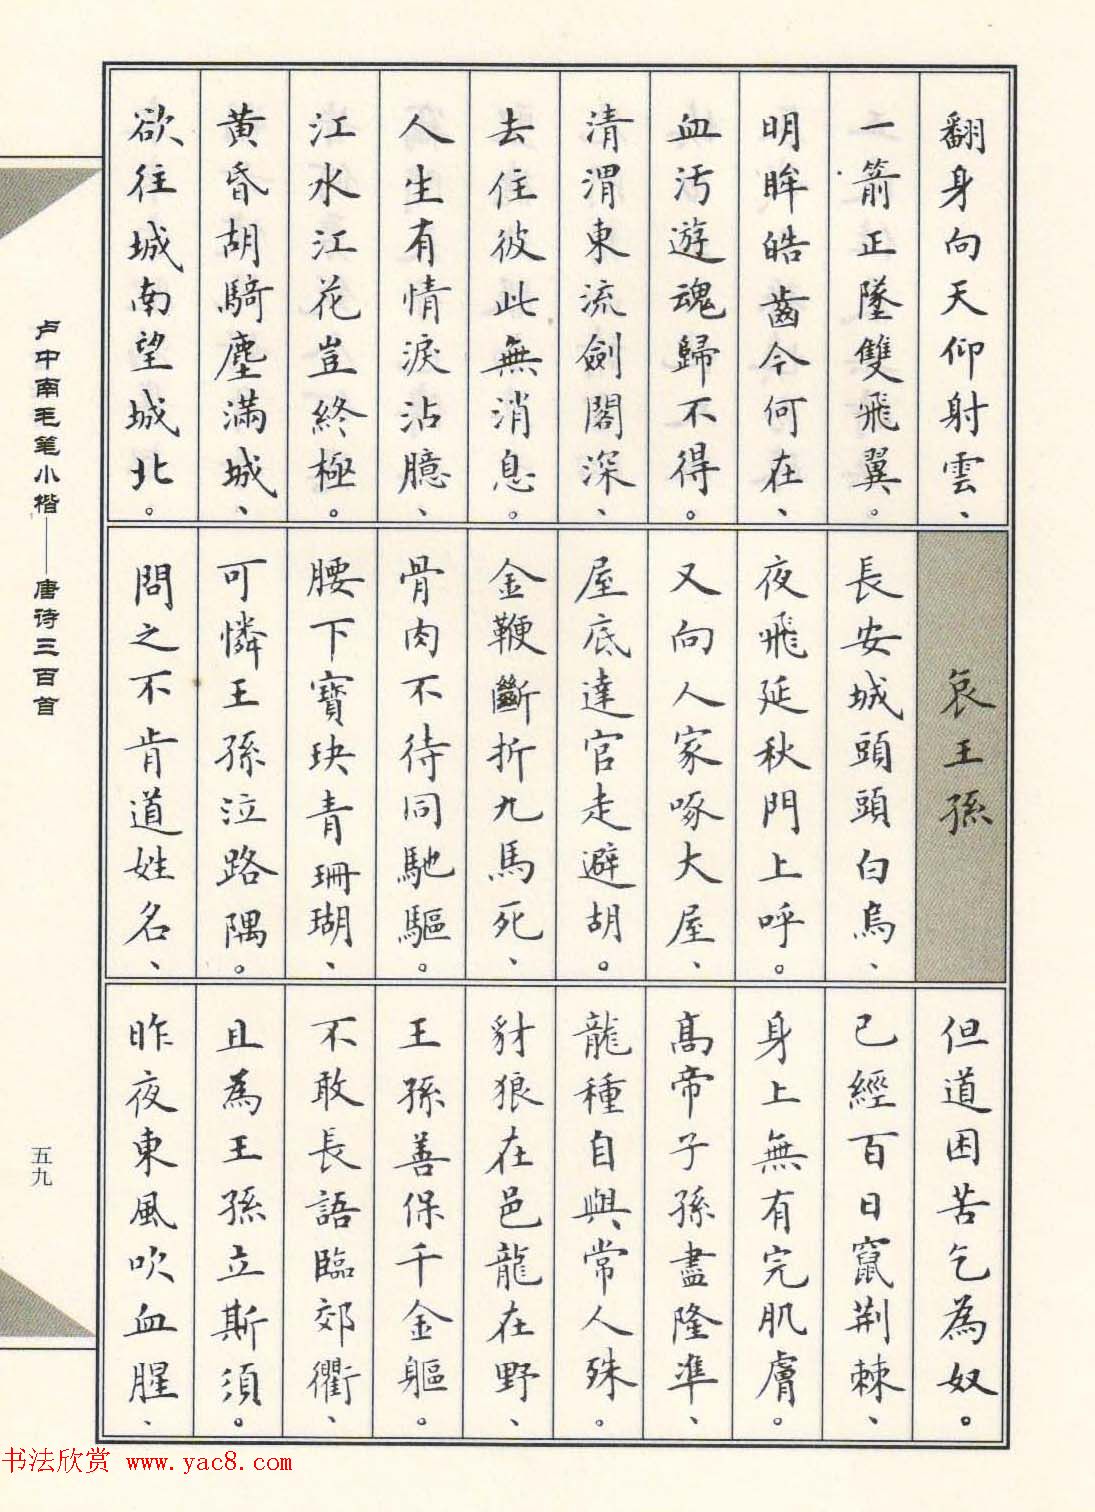 翻身向天仰射雲、
一箭正墜雙飛翼。
明眸皓齒今何在、
血汚遊魂歸不得。
清渭東流劍閣深、
去住彼此無消息。
人生有情淚沾臆、
江水江花豈終極。
黄昏胡騎塵滿城、
欲往城南望城北。
哀王孫
長安城頭頭白烏、
夜飛延秋門上呼。
又向人家啄大屋、
屋底達官走避胡。
金鞭斷折九馬死、
骨肉不待同馳驅。
腰下寶玦青珊瑚、
可憐王孫泣路隅。
問之不肯道姓名、
但道困苦乞為奴。
已經百日竄荆棘、
身上無有完肌膚。
高帝子孫盡隆準、
龍種自與常人殊。
豺狼在邑龍在野、
王孫善保千金軀。
不敢長語臨郊衢、
且為王孫立斯須。
昨夜東風吹血腥、
卢中南毛笔小楷——唐诗三百首
五九
书法欣赏 www.yac8.com